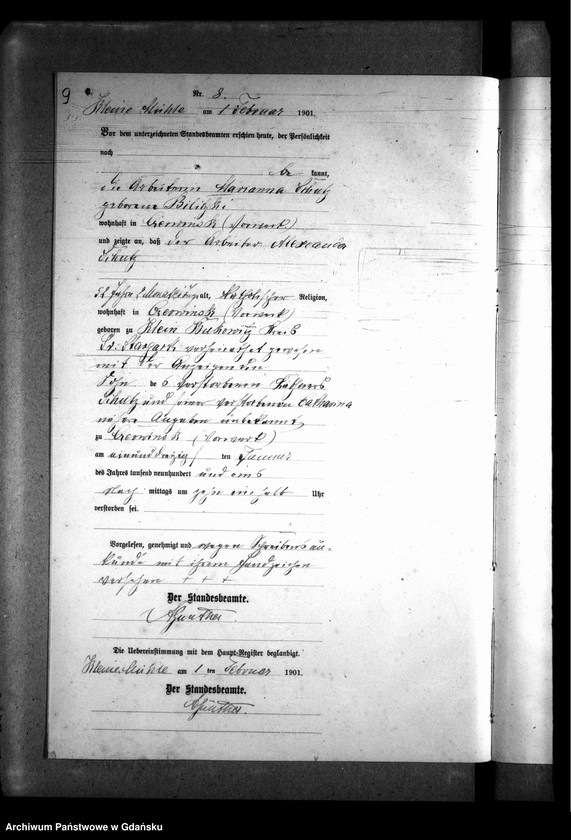 9
Nr. 8.
Kleine Mühle am 1 Februar 1901.
Vor dem unterzeichneten Standesbeamten erschien heute, der Persönlichkeit
nach
kannt,
die Arbeiterin Marianna Schutz
geborene Bilitzki
wohnhaft in Czerwinsk (Vorwerk)
und zeigte an, daß der Arbeiter Alexander
Schutz
52 Jahre 2 Monate alt, katholischer Religion,
wohnhaft in Czerwinsk (Vorwerk)
geboren zu Klein Bukowitz Kreis
Pr: Stargardt verheirathet gewesen
mit der Anzeigenden
Sohn des verstorbenen
Schutz und seiner verstorbenen Catharina
nähere Angaben unbekannt,
zu Czerwinsk (Vorwerk)
am einunddreizigsten Januar
des Jahres tausend neunhundert und eins
Nach mittags um zehn einhalb Uhr
verstorben sei.
Vorgelesen, genehmigt und wegen Schreibensun-
kunde mit ihrem Handzeichen
versehen + + +
Der Standesbeamte.
Günther
Die Uebereinstimmung mit dem Haupt-Register beglaubigt.
Kleine Mühle am 1 ten Februar 1901.
Der Standesbeamte.
Günther
Archiwum Państwowe w Gdańsku